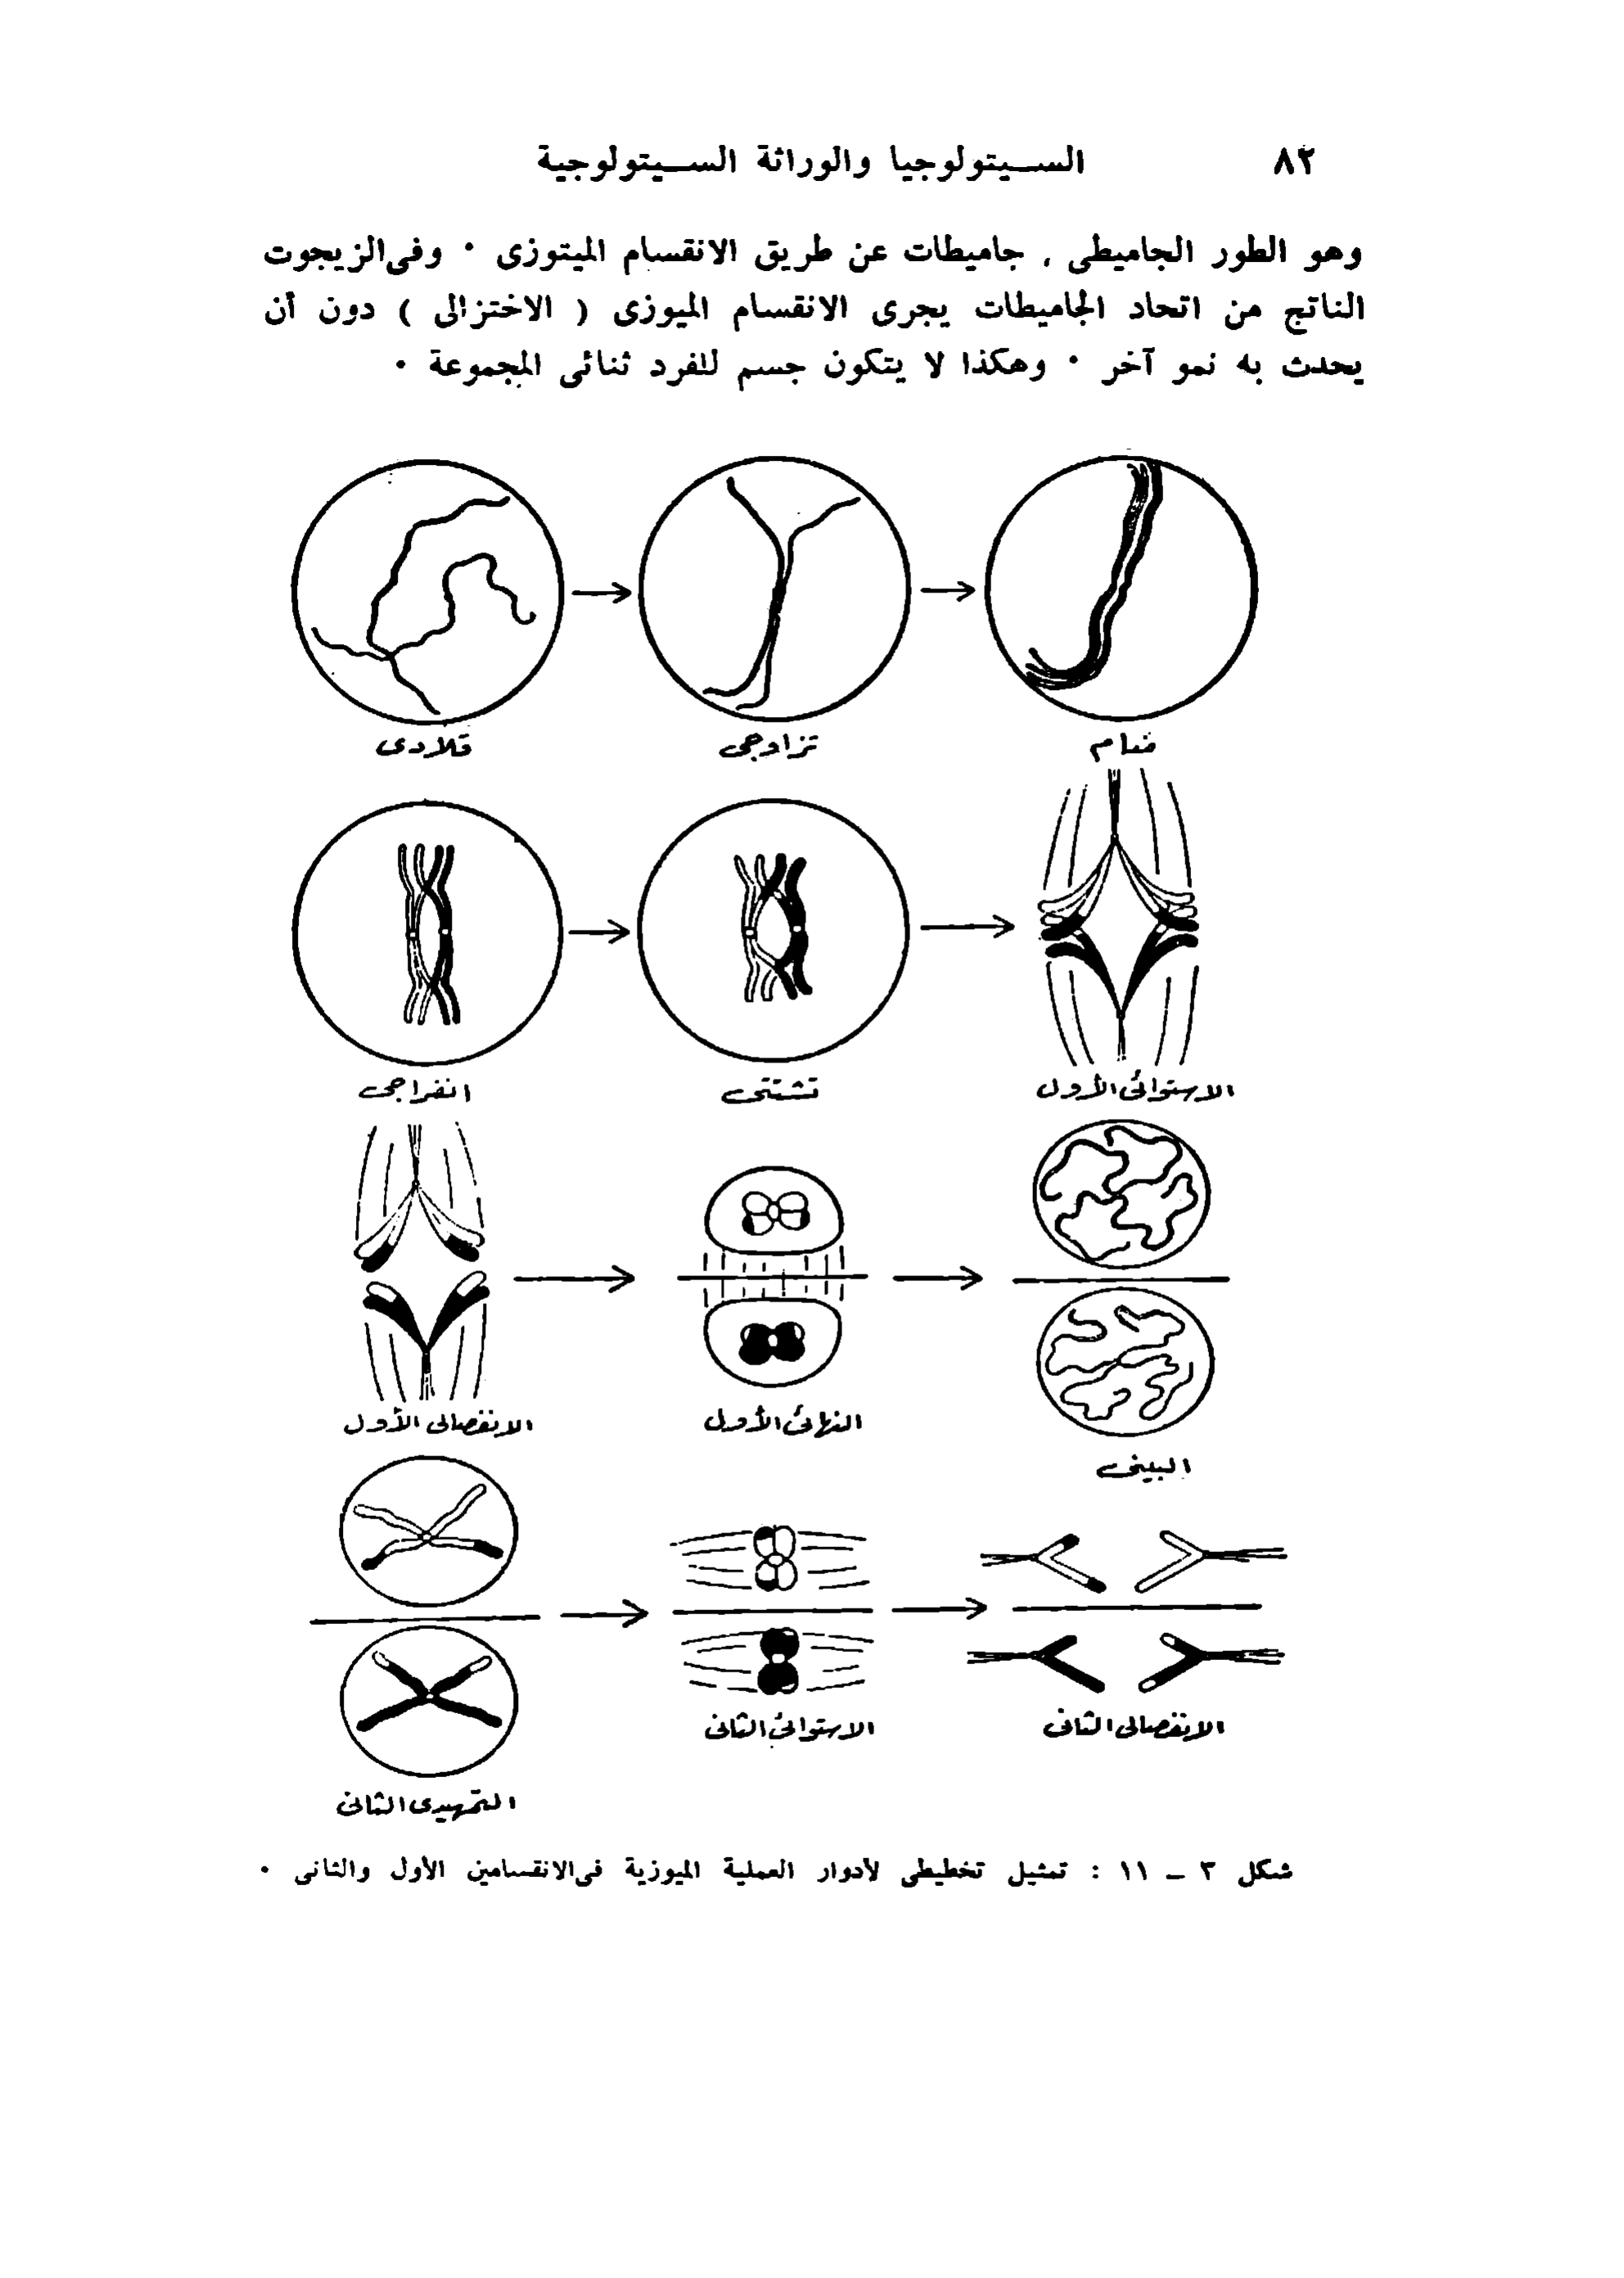 ٨٢ السيتولوجيا والوراثة السيتولوجية
وهو الطور الجاميطى ، جاميطات عن طريق الانقسام الميتوزى . وفى الزيجوت
الناتج من اتحاد الجاميطات يجرى الانقسام الميوزى ( الاختزالى ) دون أن
يحدث به نمو آخر . وهكذا لا يتكون جسم للفرد ثنائى المجموعة .
قلادى
تزاوجى
ضام
انفراجى
تشتتى
الاستوائى الأول
الانفصالى الأول
النهائى الأول
البينى
التمهيدى الثانى
الاستوائى الثانى
الانفصالى الثانى
شكل ٣ – ١١ : تمثيل تخطيطى لأدوار العملية الميوزية فى الانقسامين الأول والثانى .